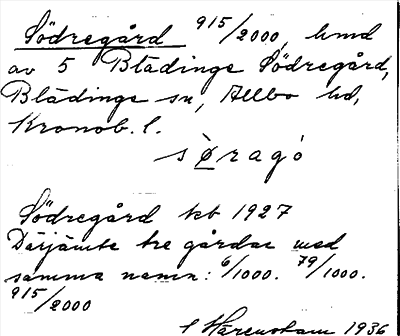 Södregård 915/2000, hmd
av 5 Blädinge Södregård,
Blädinge sn, Allbo hd,
Kronob. l.
sòragó
Södregård kb 1927
Därjämte tre gårdar med
samma namn: 6/1000. 79/1000.
915/2000
Harenstam 1936